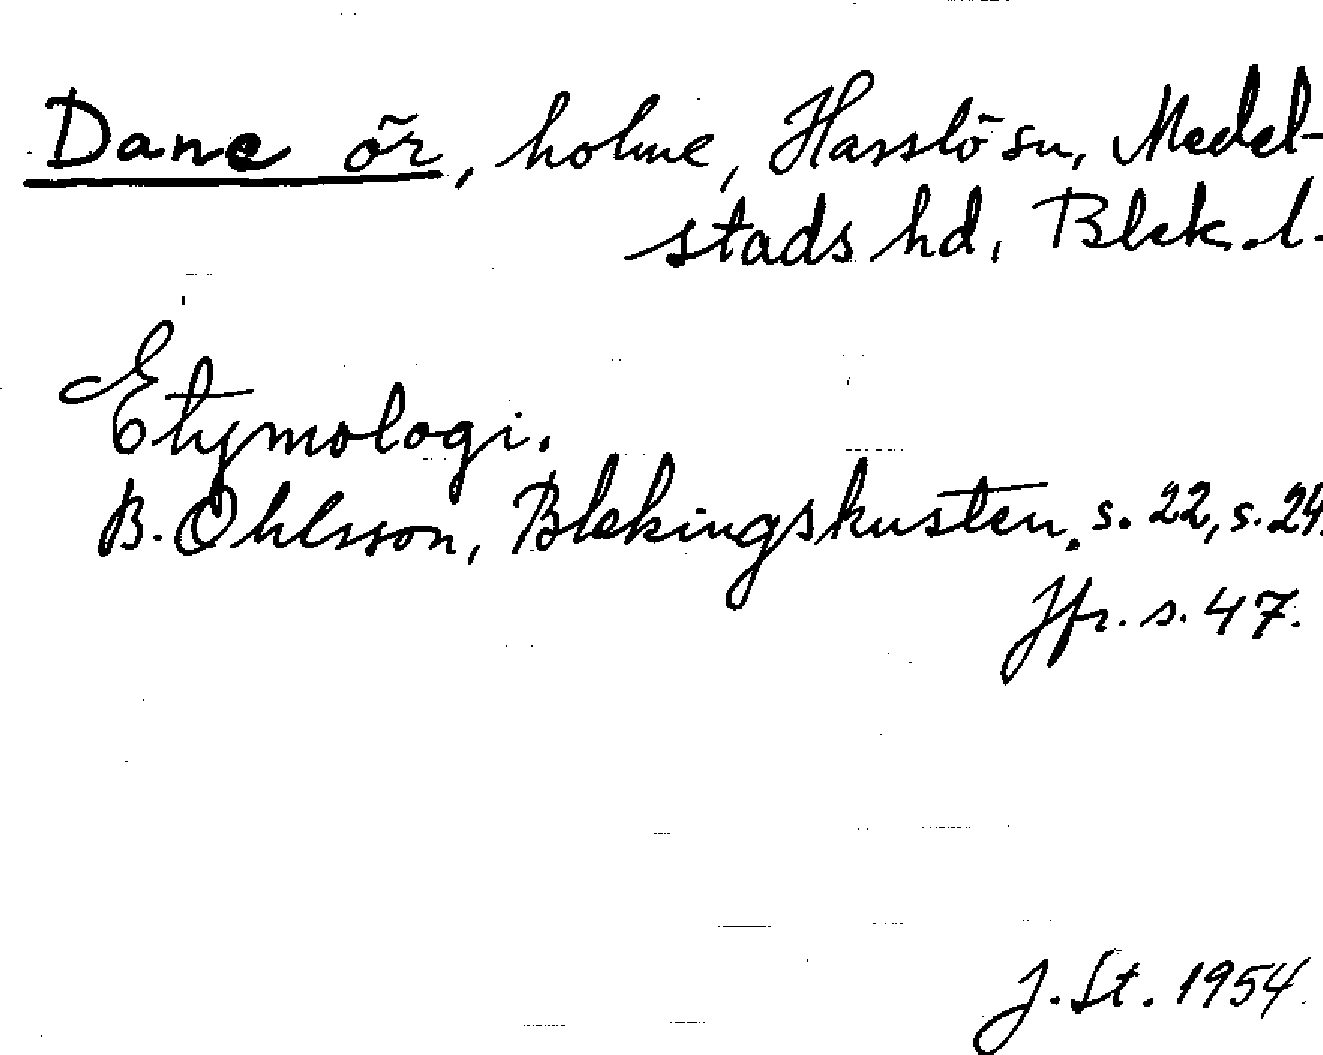 Dane ör, holme, Hasslö sn, Medel-
stads hd, Blek. l.
Etymologi.
B. Ohlsson, Blekingskusten. s. 22, s. 24.
Jfr. s. 47.
J. St. 1954